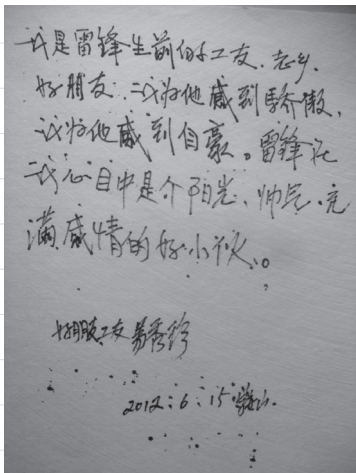 我是雷锋生前的工友、老乡、
好朋友、我为他感到骄傲、
我为他感到自豪。雷锋在
我心目中是个阳光、帅气、充
满感情的好小伙。
好朋友工友易秀珍
2012.6.15鞍山.